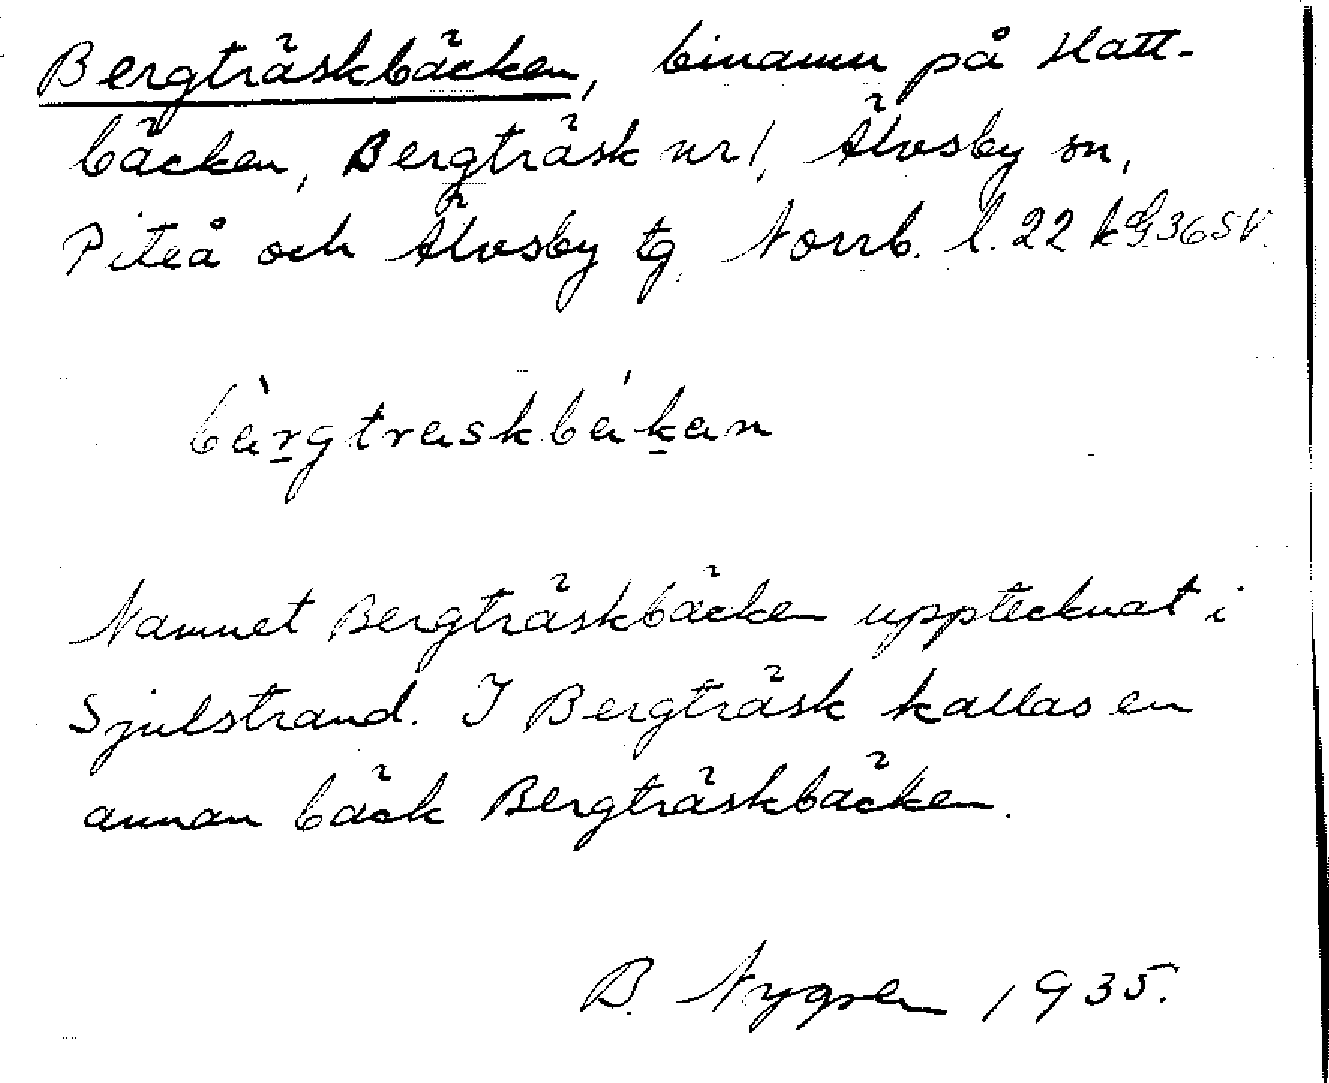 Bergträskbäcken, binamn på Hatt-
bäcken, Bergträsk nr 1, Älvsby sn,
Piteå och Älvsby tg, Norrb. l. 22 k G 365 V.
bàrgtraskbákan
Namnet Bergträskbäcken upptecknat i
Sjulstrand. I Bergträsk kallas en
annan bäck Bergträskbäcken.
B. Nygren 1935.